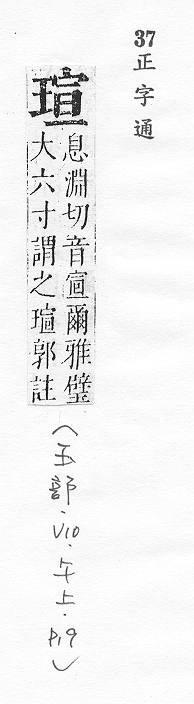 37正字通
瑄
息淵切音宣爾雅璧
大六寸謂之瑄郭註
(玉部.V10.午上.P19)